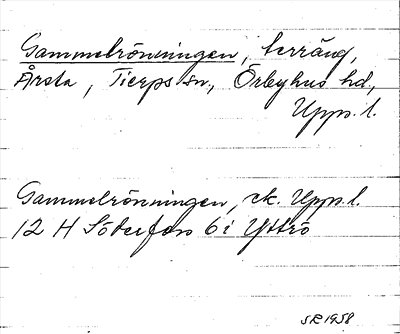 Gammelrönningen, terräng,
Årsta, Tierps sn, Örbyhus hd,
Upps. l.
Gammelrönningen, ek. Upps. l.
12 H Söderfors 6 i Yttrö
SR 1958